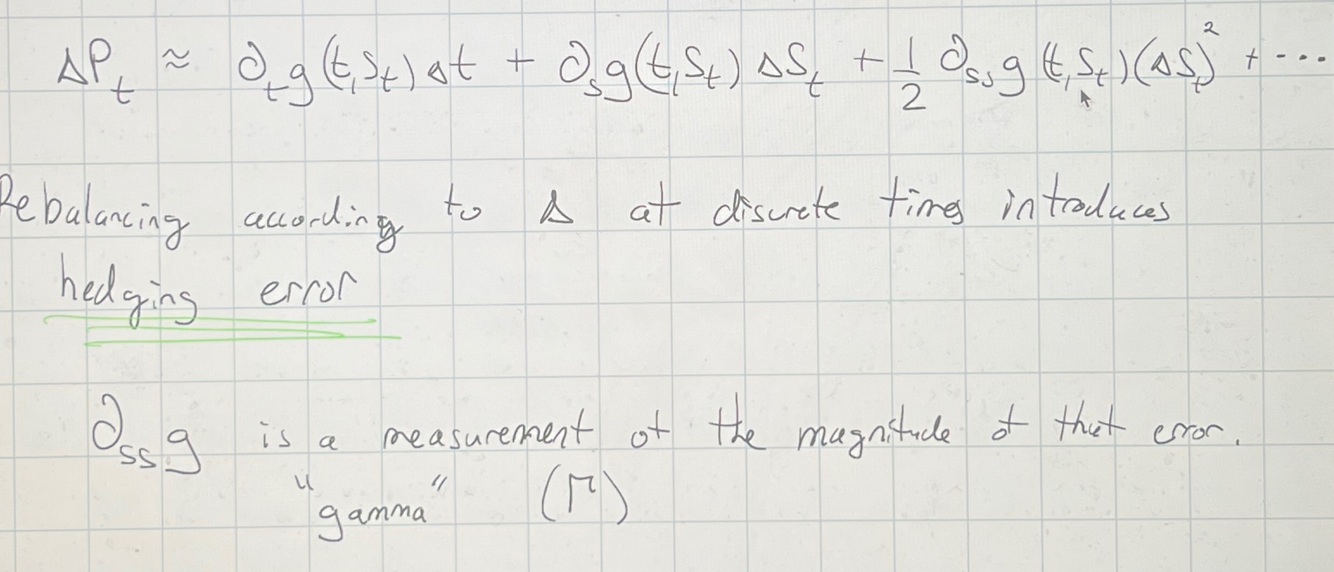 ΔPₜ ≈ ∂ₜg(t,Sₜ)Δt + ∂ₛg(t,Sₜ)ΔSₜ + 1/2 ∂ₛₛg(t,Sₜ)(ΔSₜ)² + ⋯
Rebalancing according to Δ at discrete times introduces
hedging error
∂ₛₛg is a measurement of the magnitude of that error.
"gamma" (Γ)